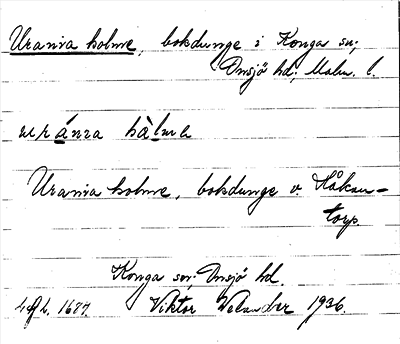 Urania holme, bokdunge i Konga sn;
Onsjö hd; Malm. l.
uránıa hàlmə
Urania holme, bokdunge v. Håkan-
torp.
Konga sn; Onsjö hd.
1677. Viktor Welander 1936.